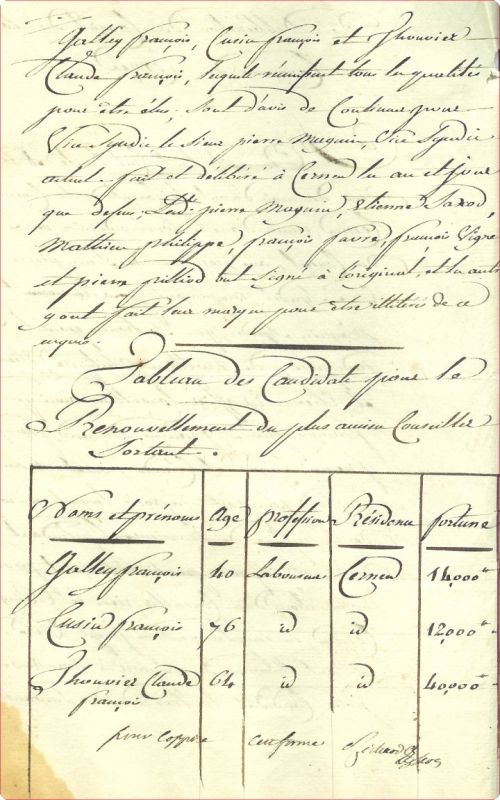 Galley françois, Cusin françois et Thouvier
Claude françois, lesquels réunissent tous les qualités
pour être élus; sont d'avis de Continuer pour
Vice Syndic le Sieur pierre Maquin, Vice Syndic
actuel. fait et délibéré à Cernex les an et jour
que dessus; Led.t pierre Maquin, Etienne Saxod,
Mathieu philippe, françois favre, françois Signe
et pierre pilliod ont Signé à l'original, et les autres
y ont fait leur marque pour être illiterés de ce
enquis.
Tableau des Candidats pour le
Renouvellement du plus ancien Conseiller
Sortant.
Noms et prénoms Age profession Résidence fortune
Galley françois 40 Laboureur Cernex 14,000
Cusin françois 76 id id 12,000
Thouvier Claude 64 id id 40,000
françois
pour Coppie conforme